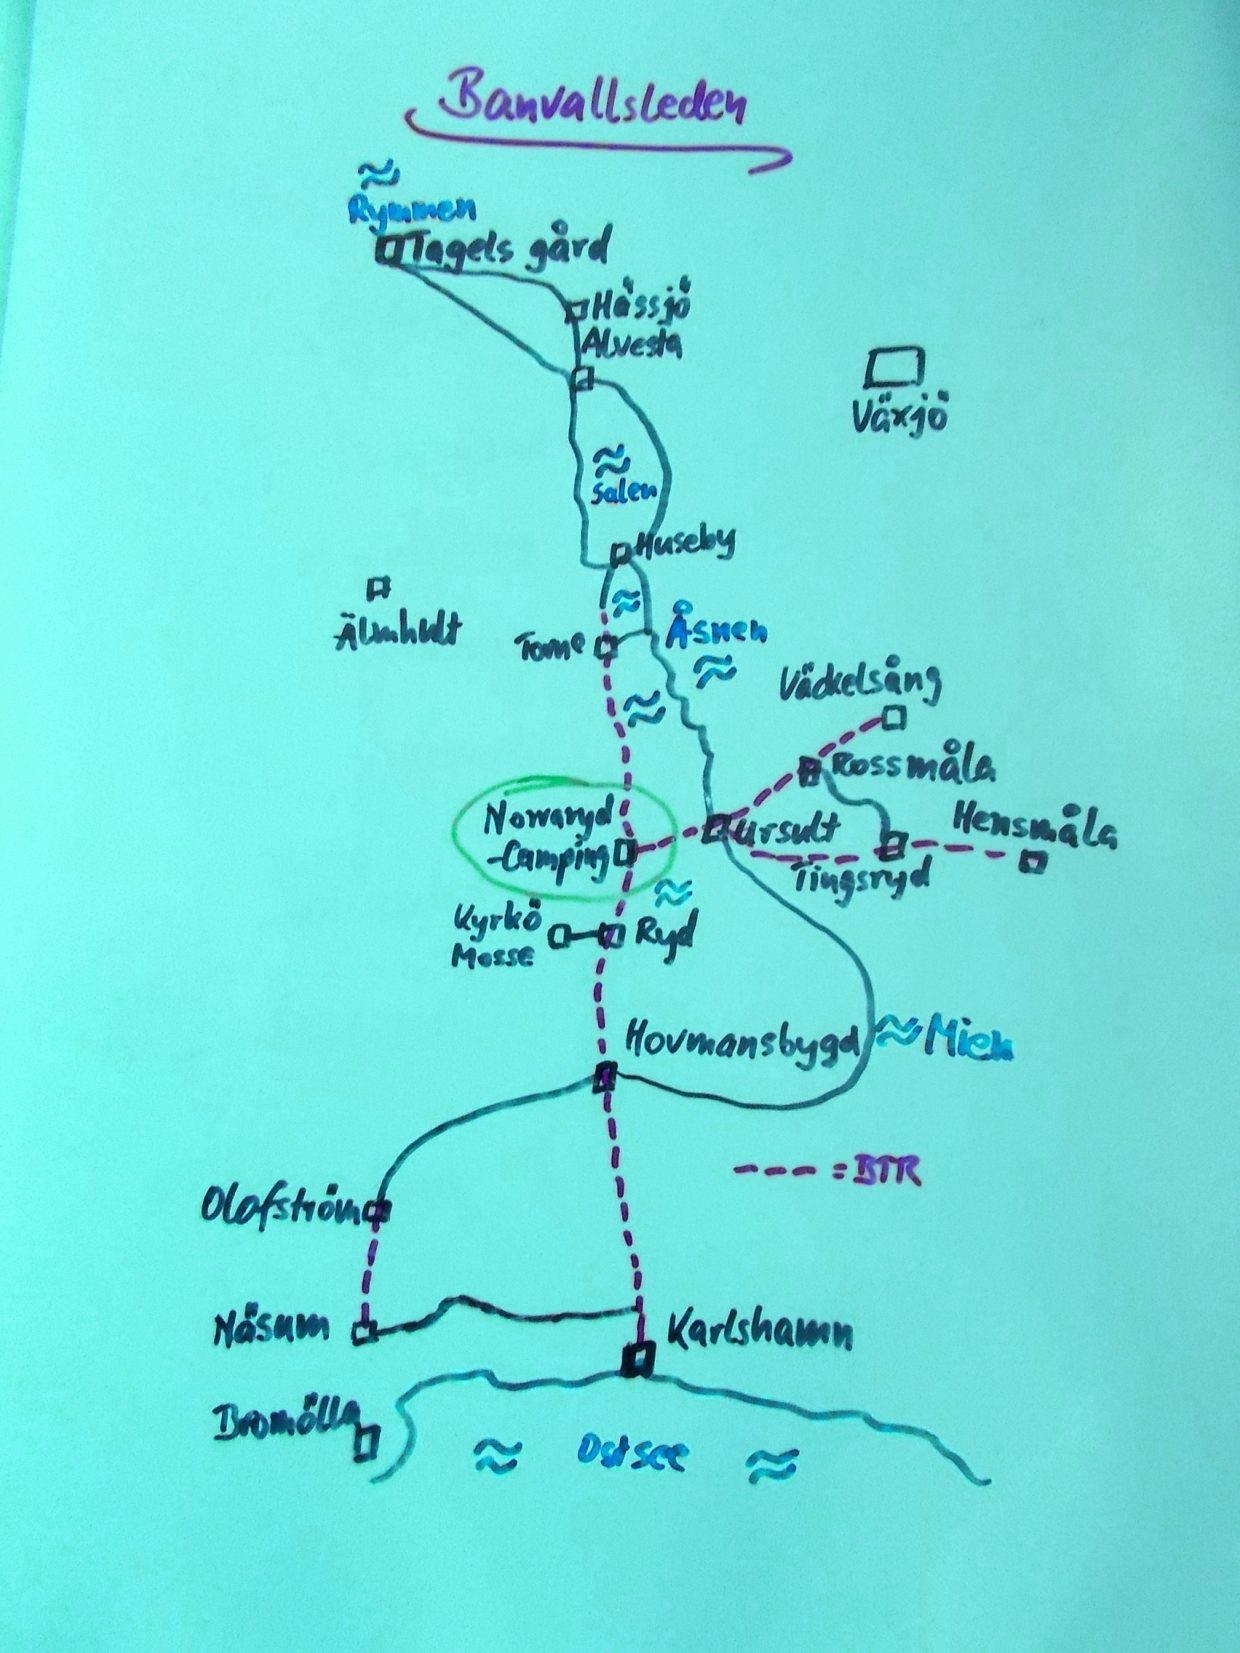 Banvallsleden
Rymmen
Tagels gård
Hässjö
Alvesta
Växjö
Salen
Huseby
Älmhult
Torne
Åsnen
Väckelsång
Rossmåla
Norraryd
-Camping
Ursult
Hensmåla
Tingsryd
Kyrkö
Mosse
Ryd
Hovmansbygd
Mien
---- = BTR
Olofström
Näsum
Karlshamn
Bromölla
Ostsee